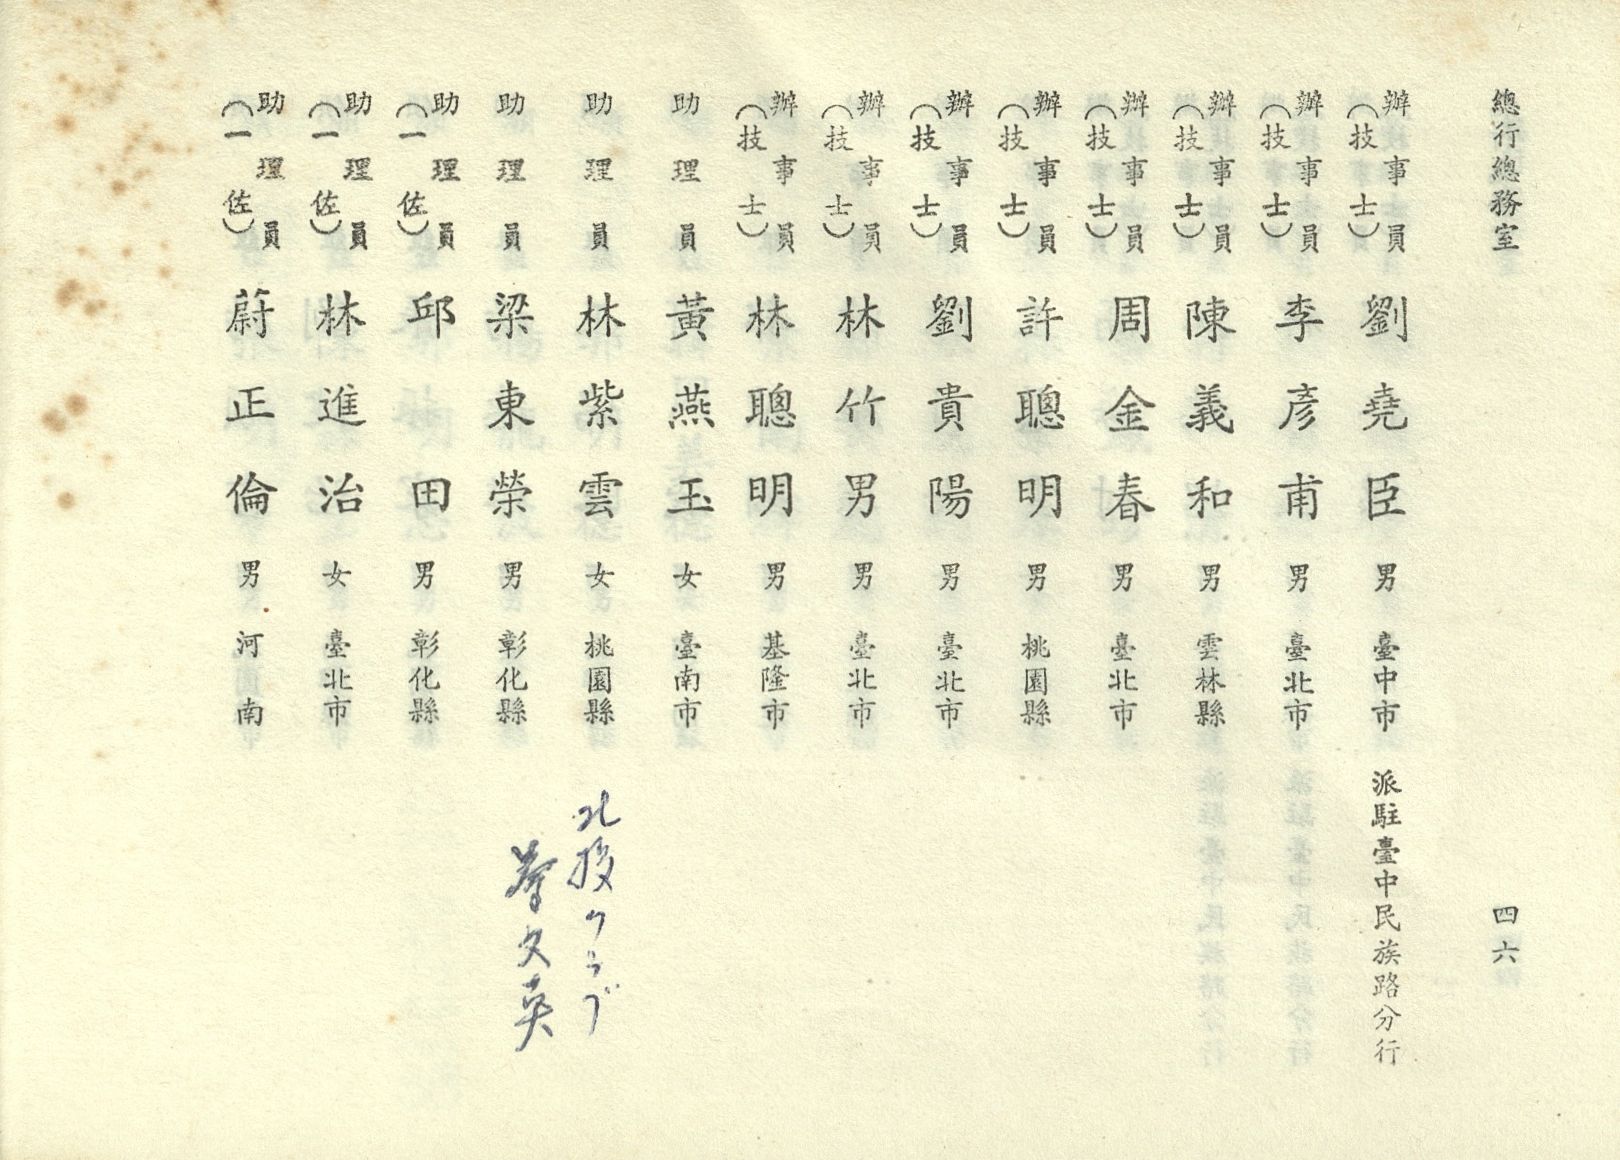 總行總務室 四六
辦事員(技士) 劉堯臣 男 臺中市 派駐臺中民族路分行
辦事員(技士) 李彦甫 男 臺北市
辦事員(技士) 陳義和 男 雲林縣
辦事員(技士) 周金春 男 臺北市
辦事員(技士) 許聰明 男 桃園縣
辦事員(技士) 劉貴陽 男 臺北市
辦事員(技士) 林竹男 男 臺北市
辦事員(技士) 林聰明 男 基隆市
助理員 黃燕玉 女 臺南市
助理員 林紫雲 女 桃園縣
北投クラブ
助理員 梁東榮 男 彰化縣
文英
助理員(一佐) 邱田 男 彰化縣
助理員(一佐) 林進治 女 臺北市
助理員(一佐) 蔚正倫 男 河南